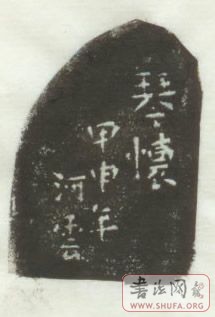 琴懷
甲申年
河
書法网
WWW.SHUFA.ORG